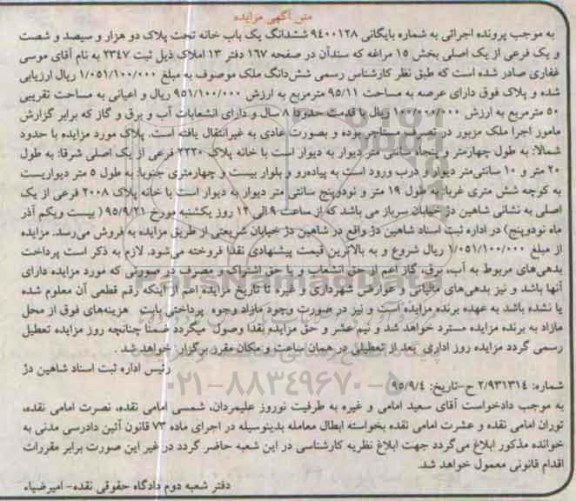 متن آگهی مزایده
به موجب پرونده اجرائی به شماره بایگانی ۹۴۰۰۱۲۸ ششدانگ یک باب خانه تحت پلاک دو هزار و سیصد و شصت
و یک فرعی از یک اصلی بخش ۱۵ مراغه که سندآن در صفحه ۱۶۷ دفتر ۱۳ املاک ذیل ثبت ۲۳۴۷ به نام آقای موسی
غفاری صادر شده است که طبق نظر کارشناس رسمی شش‌دانگ ملک موصوف به مبلغ ۱/۰۵۱/۱۰۰/۰۰۰ ریال ارزیابی
شده و پلاک فوق دارای عرصه به مساحت ۹۵/۱۱ مترمربع به ارزش ۹۵۱/۱۰۰/۰۰۰ ریال و اعیانی به مساحت تقریبی
۵۰ مترمربع به ارزش ۱۰۰/۰۰۰/۰۰۰ ریال با قدمت حدودا ۸ سال و دارای انشعابات آب و برق و گاز که برابر گزارش
مامور اجرا ملک مزبور در تصرف مستاجر بوده و بصورت عادی به غیرانتقال یافته است. پلاک مورد مزایده با حدود
شمالا: به طول چهارمتر و پنجاه سانتی متر دیوار به دیوار است با خانه پلاک ۲۳۳۰ فرعی از یک اصلی شرقا: به طول
۲۰ متر و ۱۰ سانتی‌متر دیوار و درب ورود است به پیاده‌رو و بلوار بیست و چهارمتری جنوبا: به طول ۵ متر دیواریست
به کوچه شش متری غربا: به طول ۱۹ متر و نودوپنج سانتی متر دیوار به دیوار است با خانه پلاک ۲۰۰۸ فرعی از یک
اصلی به نشانی شاهین دژ خیابان سرباز می باشد که از ساعت ۹ الی ۱۲ روز یکشنبه مورخ ۹۵/۹/۲۱ ( بیست ویکم آذر
ماه نودوپنج) در اداره ثبت اسناد شاهین دژ واقع در شاهین دژ خیابان شریعتی از طریق مزایده به فروش می‌رسد. مزایده
از مبلغ ۱/۰۵۱/۱۰۰/۰۰۰ ریال شروع و به بالاترین قیمت پیشنهادی نقدا فروخته می‌شود. لازم به ذکر است پرداخت
بدهی‌های مربوط به آب، برق، گاز اعم از حق انشعاب و یا حق اشتراک و مصرف در صورتی که مورد مزایده دارای
آنها باشد و نیز بدهی‌های مالیاتی و عوارض شهرداری و غیره تا تاریخ مزایده اعم از اینکه رقم قطعی آن معلوم شده
یا نشده باشد به عهده برنده مزایده است و نیز در صورت وجود مازاد وجوه پرداختی بابت هزینه‌های فوق از محل
مازاد به برنده مزایده مسترد خواهد شد و نیم عشر و حق مزایده نقدا وصول میگردد ضمنا چنانچه روز مزایده تعطیل
رسمی گردد مزایده روز اداری بعد از تعطیلی در همان ساعت و مکان مقرر برگزار خواهد شد .
رئیس اداره ثبت اسناد شاهین دژ
شماره: ۲/۹۳۱۳۱۴ ح-تاریخ: ۹۵/۹/۴
۰۲۱-۸۸۳۴۹۶۷۰-۵
به موجب دادخواست آقای سعید امامی و غیره به طرفیت نوروز علیمردان، شمسی امامی نقده، نصرت امامی نقده،
توران امامی نقده و عشرت امامی نقده بخواسته ابطال معامله بدینوسیله در اجرای ماده ۷۳ قانون آئین دادرسی مدنی به
خوانده مذکور ابلاغ می‌گردد جهت ابلاغ نظریه کارشناسی در این شعبه حاضر گردد در غیر این صورت برابر مقررات
اقدام قانونی معمول خواهد شد.
دفتر شعبه دوم دادگاه حقوقی نقده- امیرضیاء